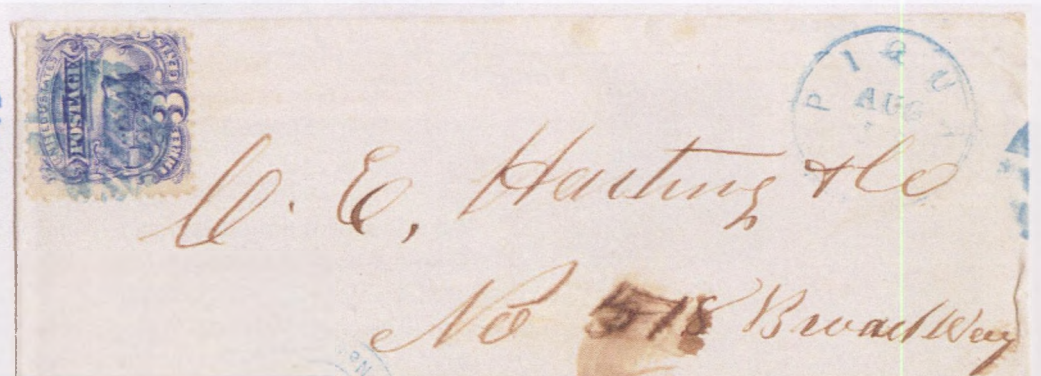 UNITED STATES
POSTAGE
3
CENTS
PIQU
AUG
C. E. Harting & Co
No 518 BroadWay